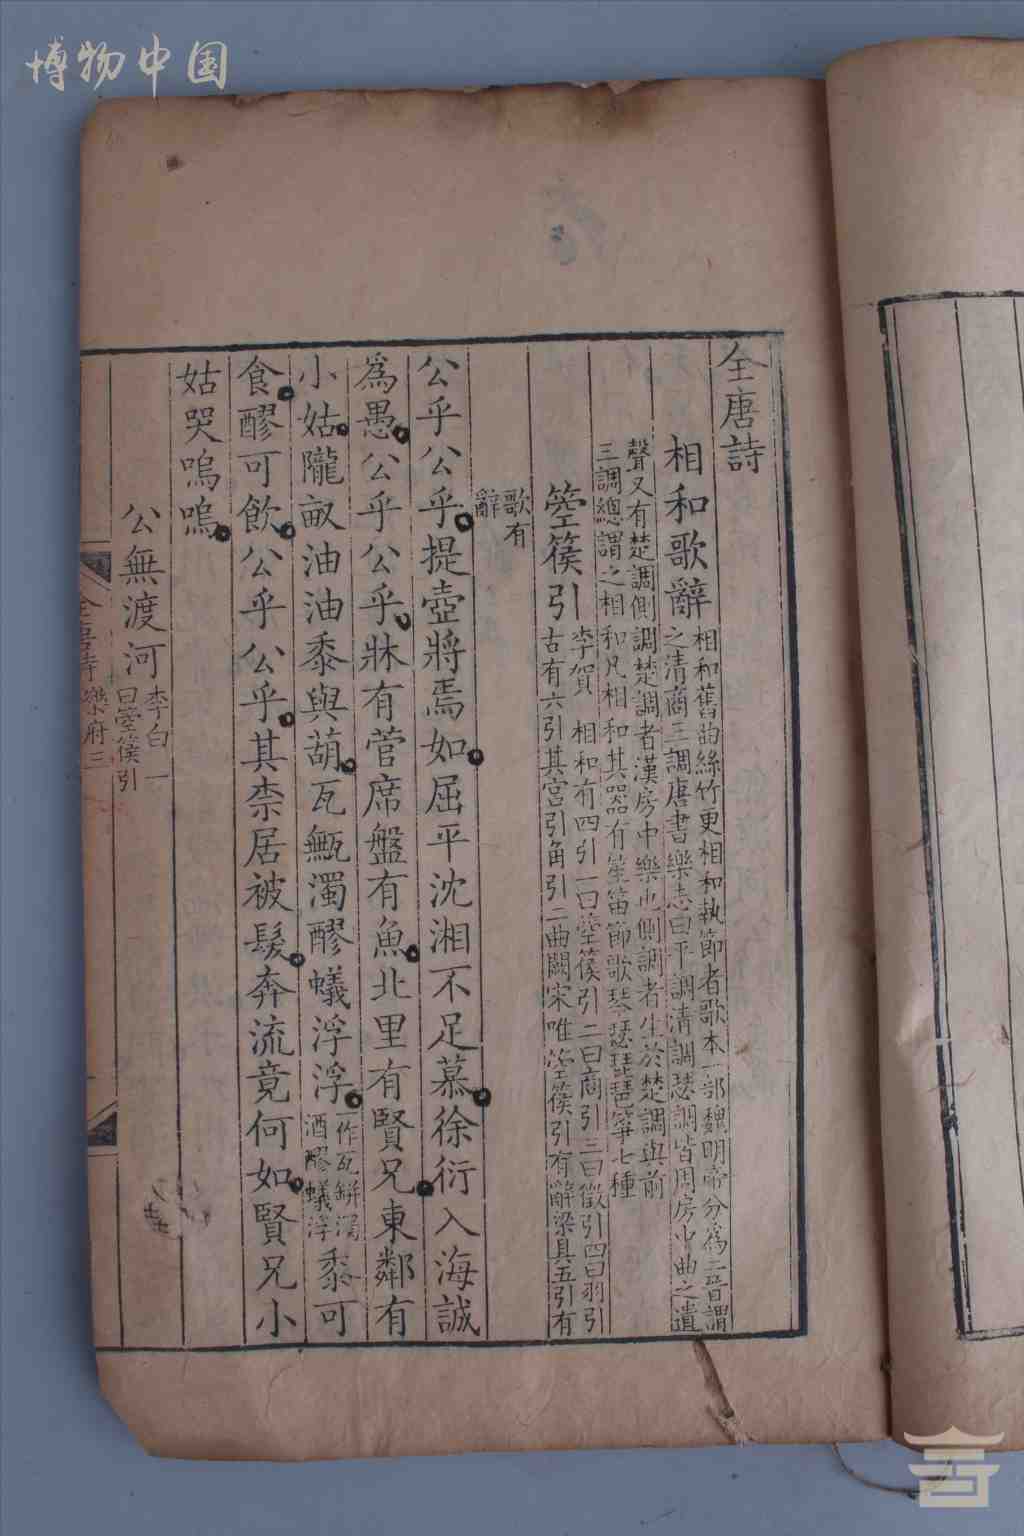 博物中国
全唐詩
相和歌辭
相和舊曲絲竹更相和執節者歌本一部魏明帝分為二晉謂
之清商三調唐書樂志曰平調清調瑟調皆周房中曲之遺
聲又有楚調側調楚調者漢房中樂也側調者生於楚調與前
三調總謂之相和凡相和其器有笙笛節歌琴瑟琵琶箏七種
箜篌引
李賀 相和有四引一曰箜篌引二曰商引三曰徵引四曰羽引
古有六引其宮引角引二曲闕宋唯箜篌引有辭梁具五引有
歌有
辭
公乎公乎提壺將焉如屈平沈湘不足慕徐衍入海誠
為愚公乎公乎牀有菅席盤有魚北里有賢兄東鄰有
小姑隴畝油油黍與葫瓦甒濁醪蟻浮浮
一作瓦缾濁
酒醪蟻浮
黍可
食醪可飲公乎公乎其柰居被髮奔流竟何如賢兄小
姑哭嗚嗚
公無渡河
李白 一
曰箜篌引
全唐詩 樂府三